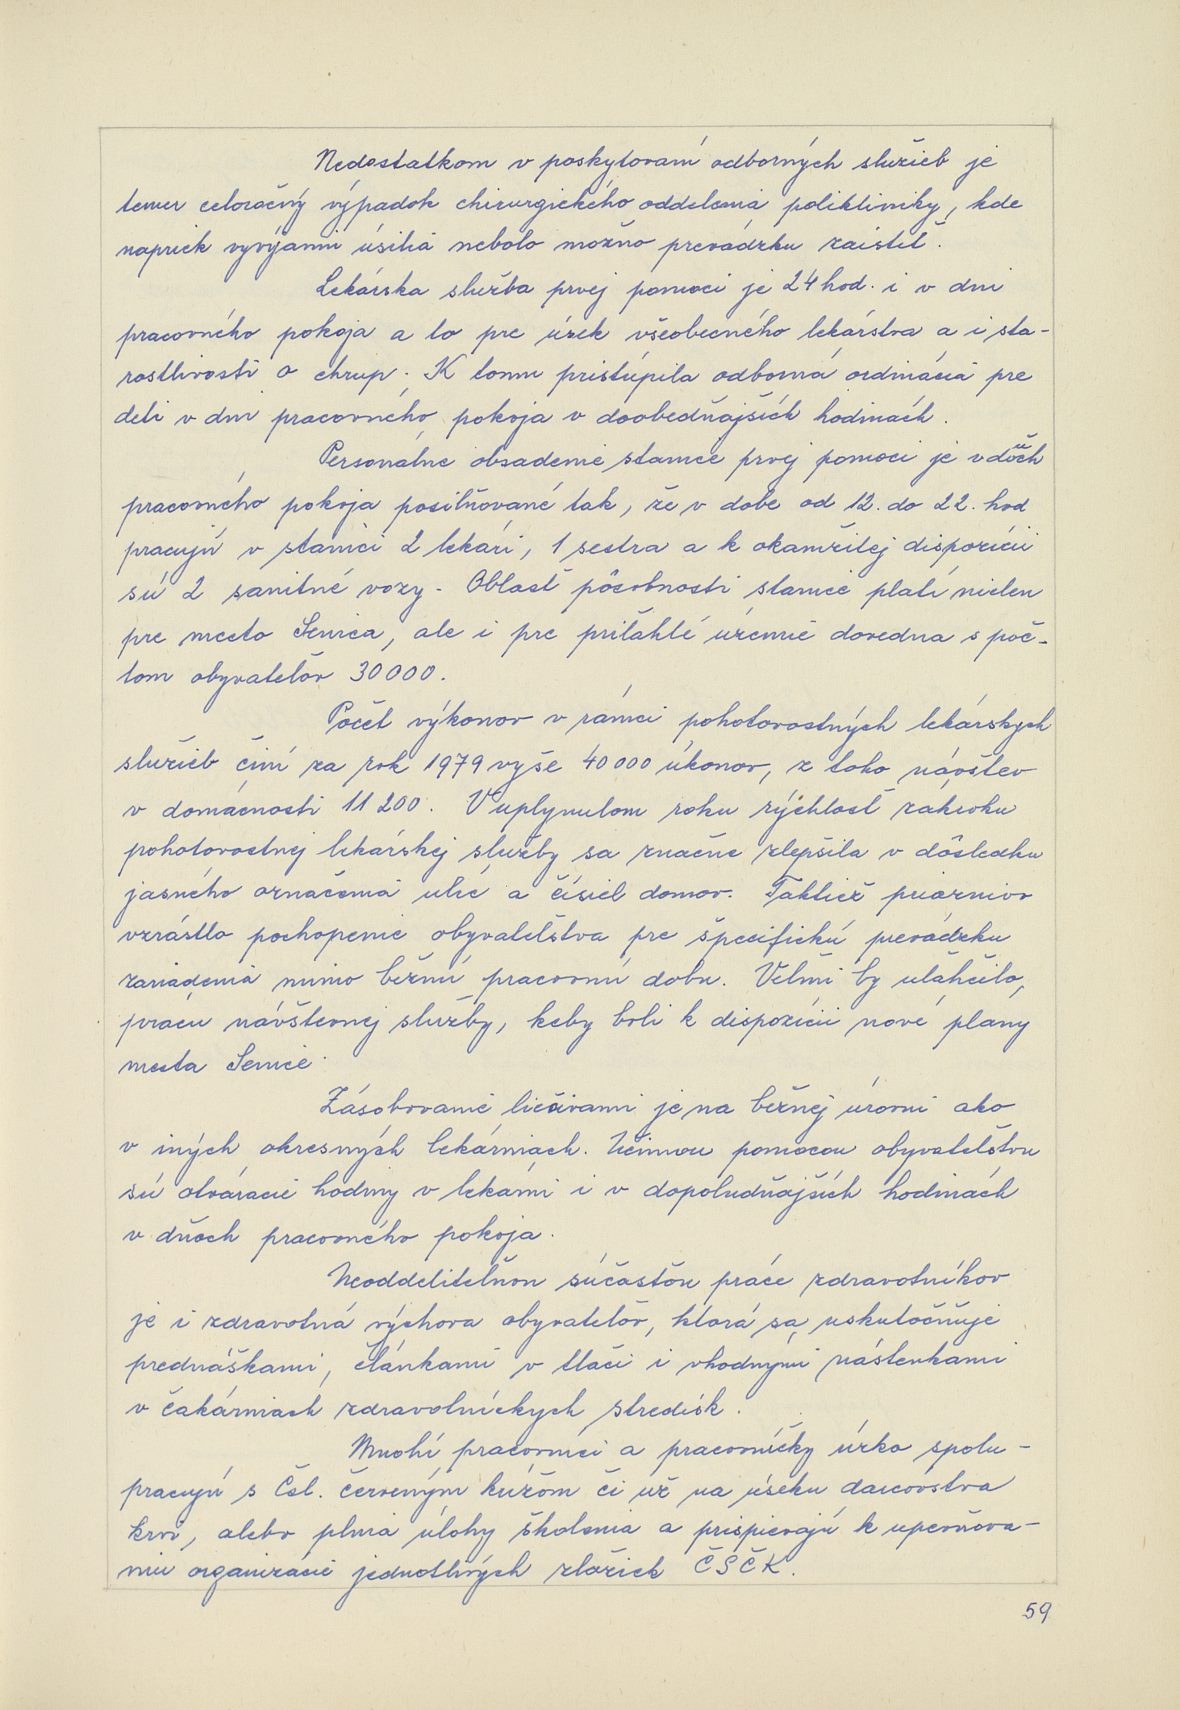 Nedostatkom v poskytovaní odborných služieb je
temer celoročný výpadok chirurgického oddelenia polikliniky, kde
napriek vyvýjaniu úsilia nebolo možno prevádzku zaistiť.
Lekárska služba prvej pomoci je 24 hod. i v dni
pracovného pokoja a to pre úsek všeobecného lekárstva a i sta-
rostlivosti o chrup. K tomu pristúpila odborná ordinácia pre
deti v dni pracovného pokoja v doobedňajších hodinách.
Personálne obsadenie stanice prvej pomoci je v dňoch
pracovného pokoja posilňované tak, že v dobe od 12. do 22. hod
pracujú v stanici 2 lekári, 1 sestra a k okamžitej dispozícii
sú 2 sanitné vozy. Oblasť pôsobnosti stanice platí nielen
pre mesto Senica, ale i pre priľahlé územie dovedna s poč-
tom obyvateľov 30 000.
Počet výkonov v rámci pohotovostných lekárskych
služieb činí za rok 1979 vyše 40 000 úkonov, z toho návštev
v domácnosti 11 200. V uplynulom roku rýchlosť zákroku
pohotovostnej lekárskej služby sa značne zlepšila v dôsledku
jasného označenia ulíc a čísiel domov. Taktiež priaznivo
vzrástlo pochopenie obyvateľstva pre špecifickú prevádzku
zariadenia mimo bežnú pracovnú dobu. Veľmi by uľahčilo,
prácu návštevnej služby, keby boli k dispozícii nové plány
mesta Senice.
Zásobovanie liečivami je na bežnej úrovni ako
v iných okresných lekárniach. Účinnou pomocou obyvateľstvu
sú otváracie hodiny v lekárni i v dopoludňajších hodinách
v dňoch pracovného pokoja.
Neoddeliteľnou súčasťou práce zdravotníkov
je i zdravotná výchova obyvateľov, ktorá sa uskutočňuje
prednáškami, článkami v tlači i vhodnými nástenkami
v čakárniach zdravotníckych stredísk.
Mnohí pracovníci a pracovníčky úzko spolu-
pracujú s Čsl. červeným krížom či už na úseku darcovstva
krvi, alebo plnia úlohy školenia a prispievajú k upevňova-
niu organizácie jednotlivých zložiek ČSČK.
59